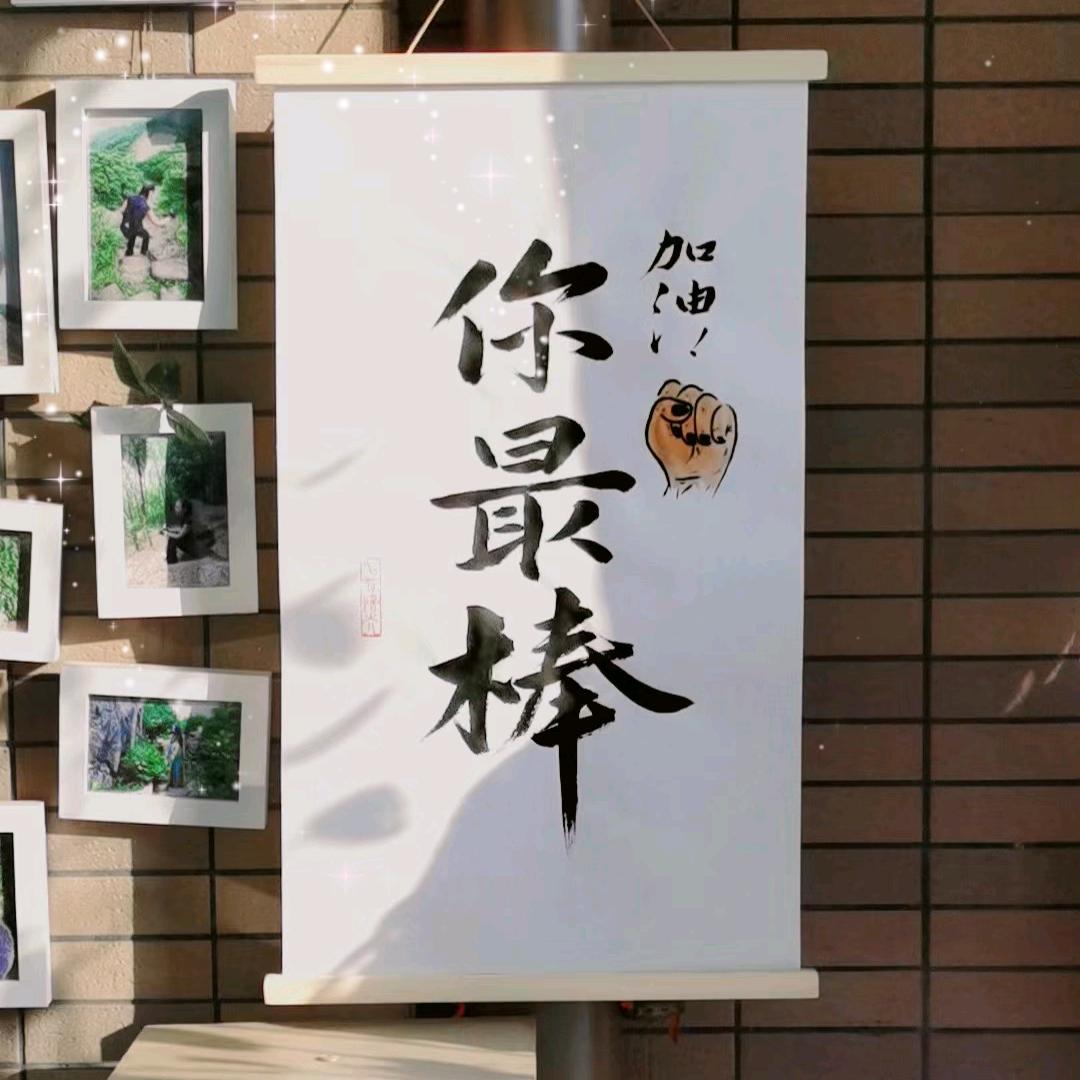 加油!
你最棒